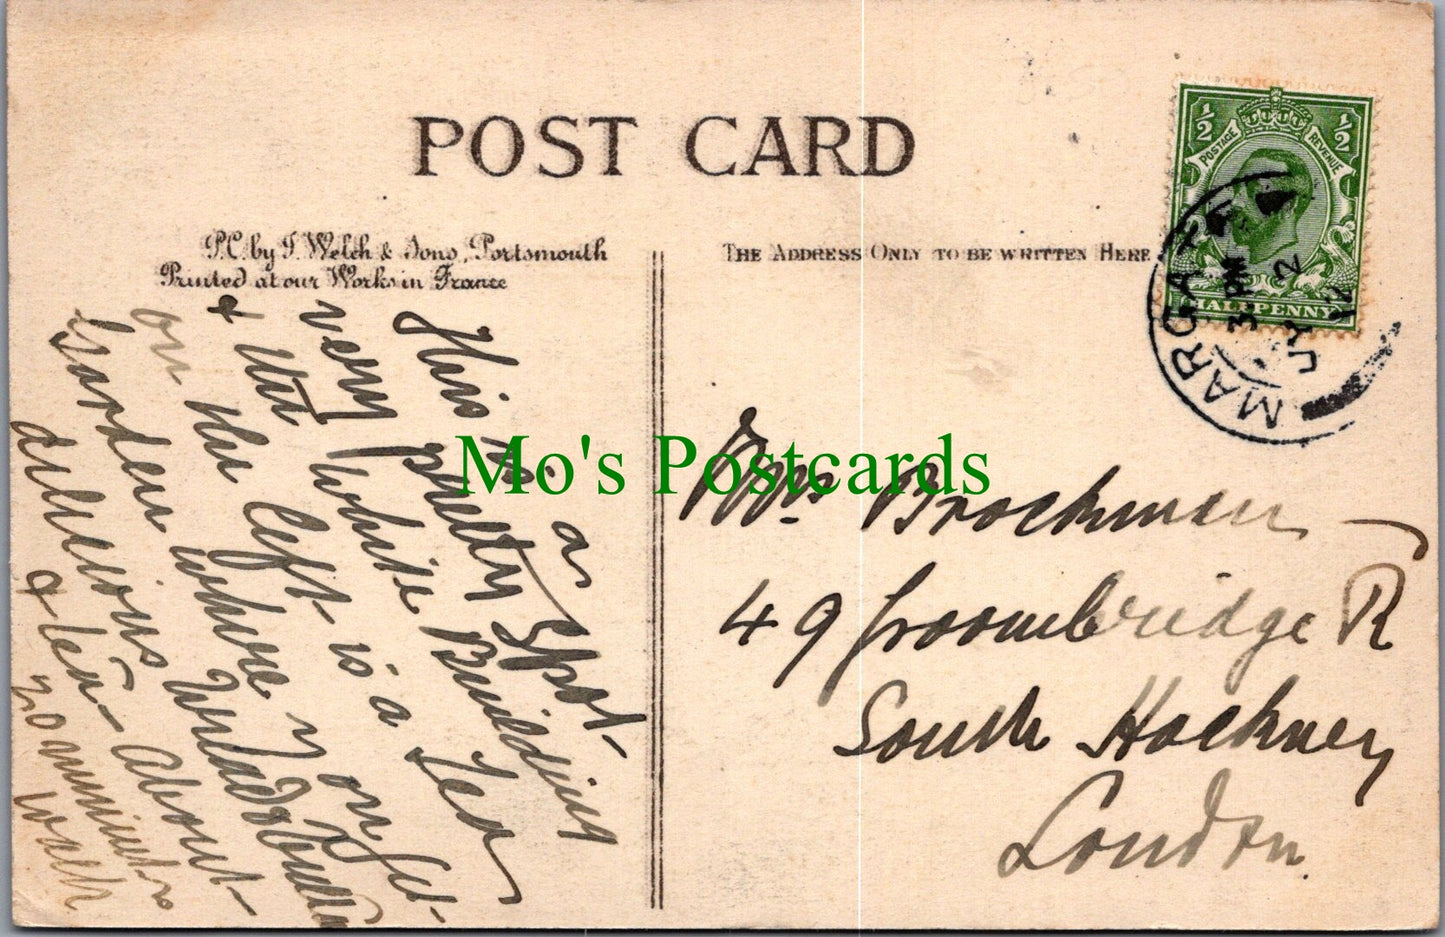 POST CARD
P.C. by J. Welch & Sons, Portsmouth
Printed at our Works in France
THE ADDRESS ONLY TO BE WRITTEN HERE
1/2 1/2
POSTAGE REVENUE
HALFPENNY
MARGATE
3 PM
JY 2
12
This is a
very pretty Spot-
& the white Building
on the left is a Tea
Garden where you get
delicious bread & butter
& tea - About-
20 minutes
walk
Mo's Postcards
Mrs Brockman
49 Groombridge R
South Hackney
London.